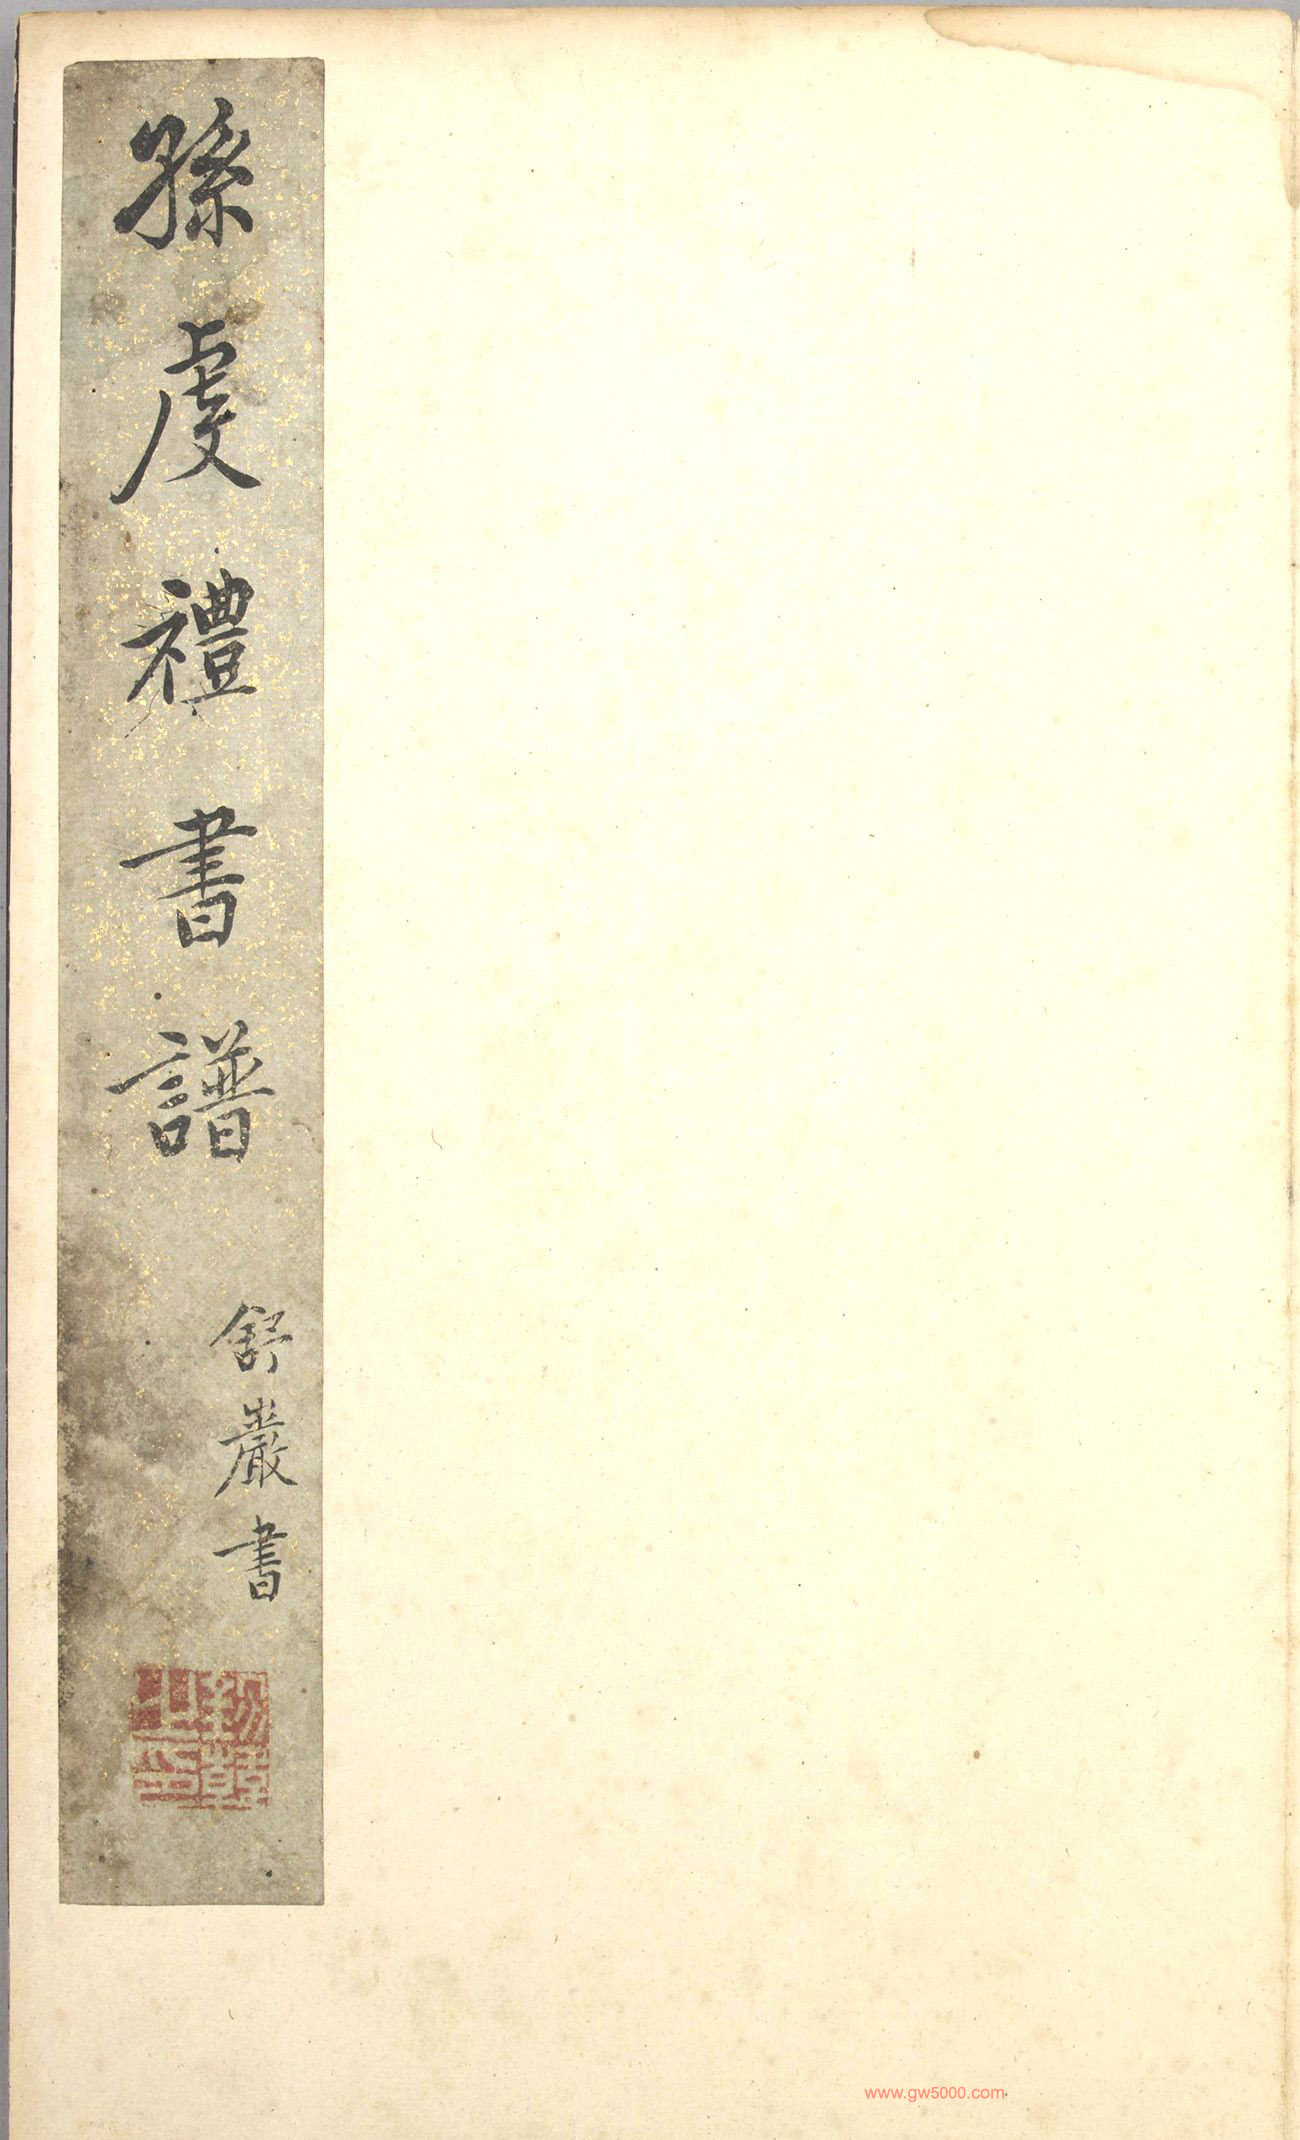 孫虔禮書譜
舒嚴書
www.gw5000.com